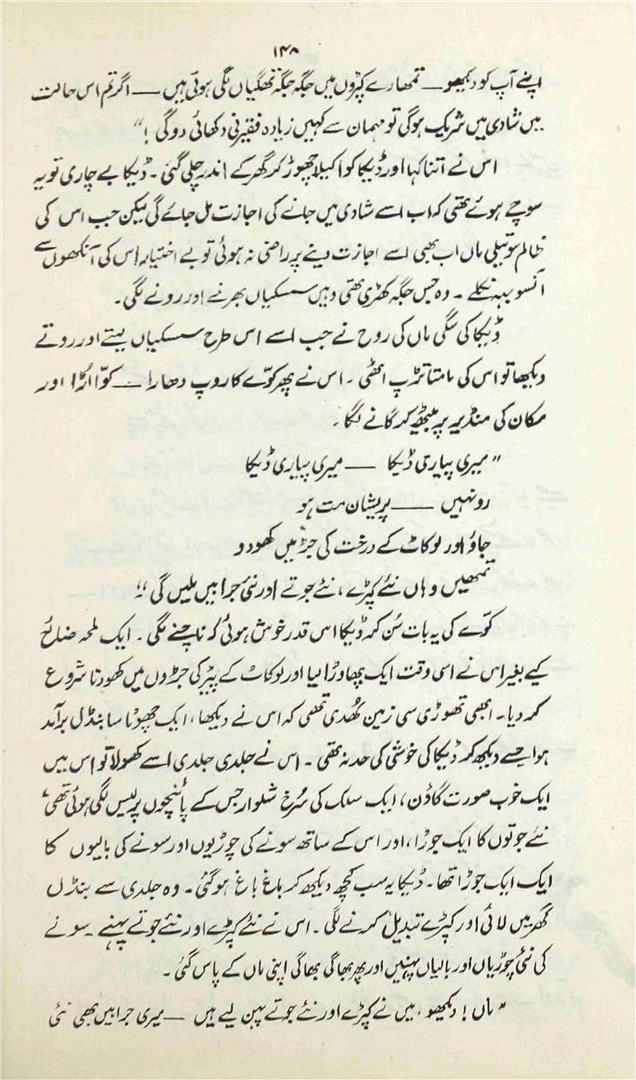 ۱۴۸
اپنے آپ کو دیکھو — تمھارے کپڑوں میں جگہ جگہ تھگلیاں لگی ہوئی ہیں — اگر تم اس حالت
میں شادی میں شریک ہوگی تو مہمان سے کہیں زیادہ فقیرنی دکھائی دو گی !"
اس نے اتنا کہا اور ڈیکا کو اکیلا چھوڑ کر گھر کے اندر چلی گئی ۔ ڈیکا بے چاری تو یہ
سوچے ہوئے تھی کہ اب اسے شادی میں جانے کی اجازت مل جائے گی لیکن جب اس کی
ظالم سوتیلی ماں اب بھی اسے اجازت دینے پر راضی نہ ہوئی تو بے اختیار اس کی آنکھوں سے
آنسو بہہ نکلے ۔ وہ جس جگہ کھڑی تھی وہیں سسکیاں بھرنے اور رونے لگی ۔
ڈیکا کی سگی ماں کی روح نے جب اسے اس طرح سسکیاں لیتے اور روتے
دیکھا تو اس کی مامتا تڑپ اٹھی ۔ اس نے پھر کوّے کا روپ دھارا — کوّا اڑا اور
مکان کی منڈیر پر بیٹھ کر گانے لگا ۔
"میری پیاری ڈیکا — میری پیاری ڈیکا
رو نہیں — پریشان مت ہو
جاؤ اور لوکاٹ کے درخت کی جڑ میں کھودو
تمھیں وہاں نئے کپڑے ، نئے جوتے اور نئی جرابیں ملیں گی"
کوّے کی یہ بات سُن کر ڈیکا اس قدر خوش ہوئی کہ ناچنے لگی ۔ ایک لمحہ ضائع
کیے بغیر اس نے اسی وقت ایک پھاوڑا لیا اور لوکاٹ کے پیڑ کی جڑوں میں کھودنا شروع
کر دیا ۔ ابھی تھوڑی سی زمین کُھدی تھی کہ اس نے دیکھا ، ایک چھوٹا سا بنڈل برآمد
ہوا جسے دیکھ کر ڈیکا کی خوشی کی حد نہ تھی ۔ اس نے جلدی جلدی اسے کھولا تو اس میں
ایک خوب صورت گاؤن ، ایک سلک کی سُرخ شلوار جس کے پائنچوں پر لیس لگی ہوئی تھی ،
نئے جوتوں کا ایک جوڑا ، اور اس کے ساتھ سونے کی چوڑیوں اور سونے کی بالیوں کا
ایک ایک جوڑا تھا ۔ ڈیکا یہ سب کچھ دیکھ کر باغ باغ ہو گئی ۔ وہ جلدی سے بنڈل
گھر میں لائی اور کپڑے تبدیل کرنے لگی ۔ اس نے نئے کپڑے اور نئے جوتے پہنے ۔ سونے
کی نئی چوڑیاں اور بالیاں پہنیں اور پھر بھاگی بھاگی اپنی ماں کے پاس گئی ۔
"ماں ! دیکھو ، میں نے کپڑے اور نئے جوتے پہن لیے ہیں — میری جرابیں بھی نئی